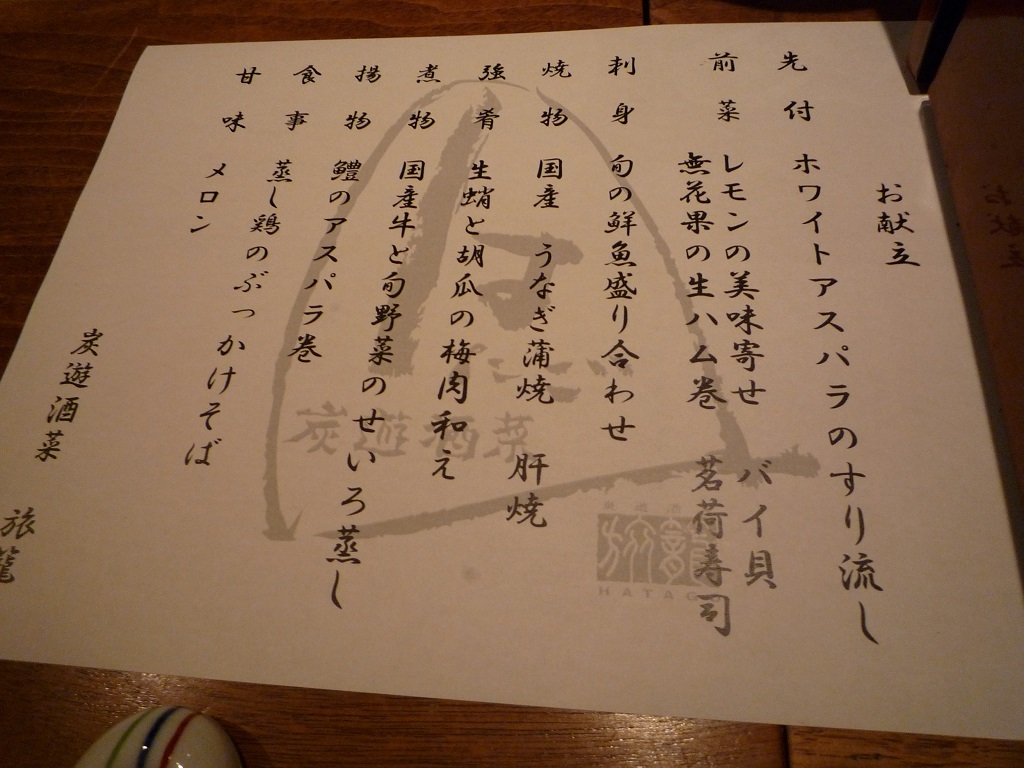 お献立
先付 ホワイトアスパラのすり流し
前菜 レモンの美味寄せ バイ貝
無花果の生ハム巻 茗荷寿司
刺身 旬の鮮魚盛り合わせ
焼物 国産 うなぎ蒲焼 肝焼
強肴 生蛸と胡瓜の梅肉和え
煮物 国産牛と旬野菜のせいろ蒸し
揚物 鱧のアスパラ巻
食事 蒸し鶏のぶっかけそば
甘味 メロン
炭遊酒菜 旅籠
炭遊酒菜
HATAG